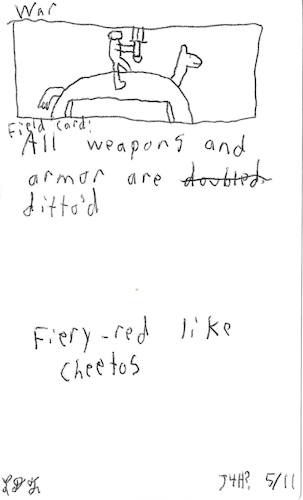 War
Field card:
All weapons and
armor are doubled
ditto'd
Fiery-red like
cheetos
J4H? 5/11